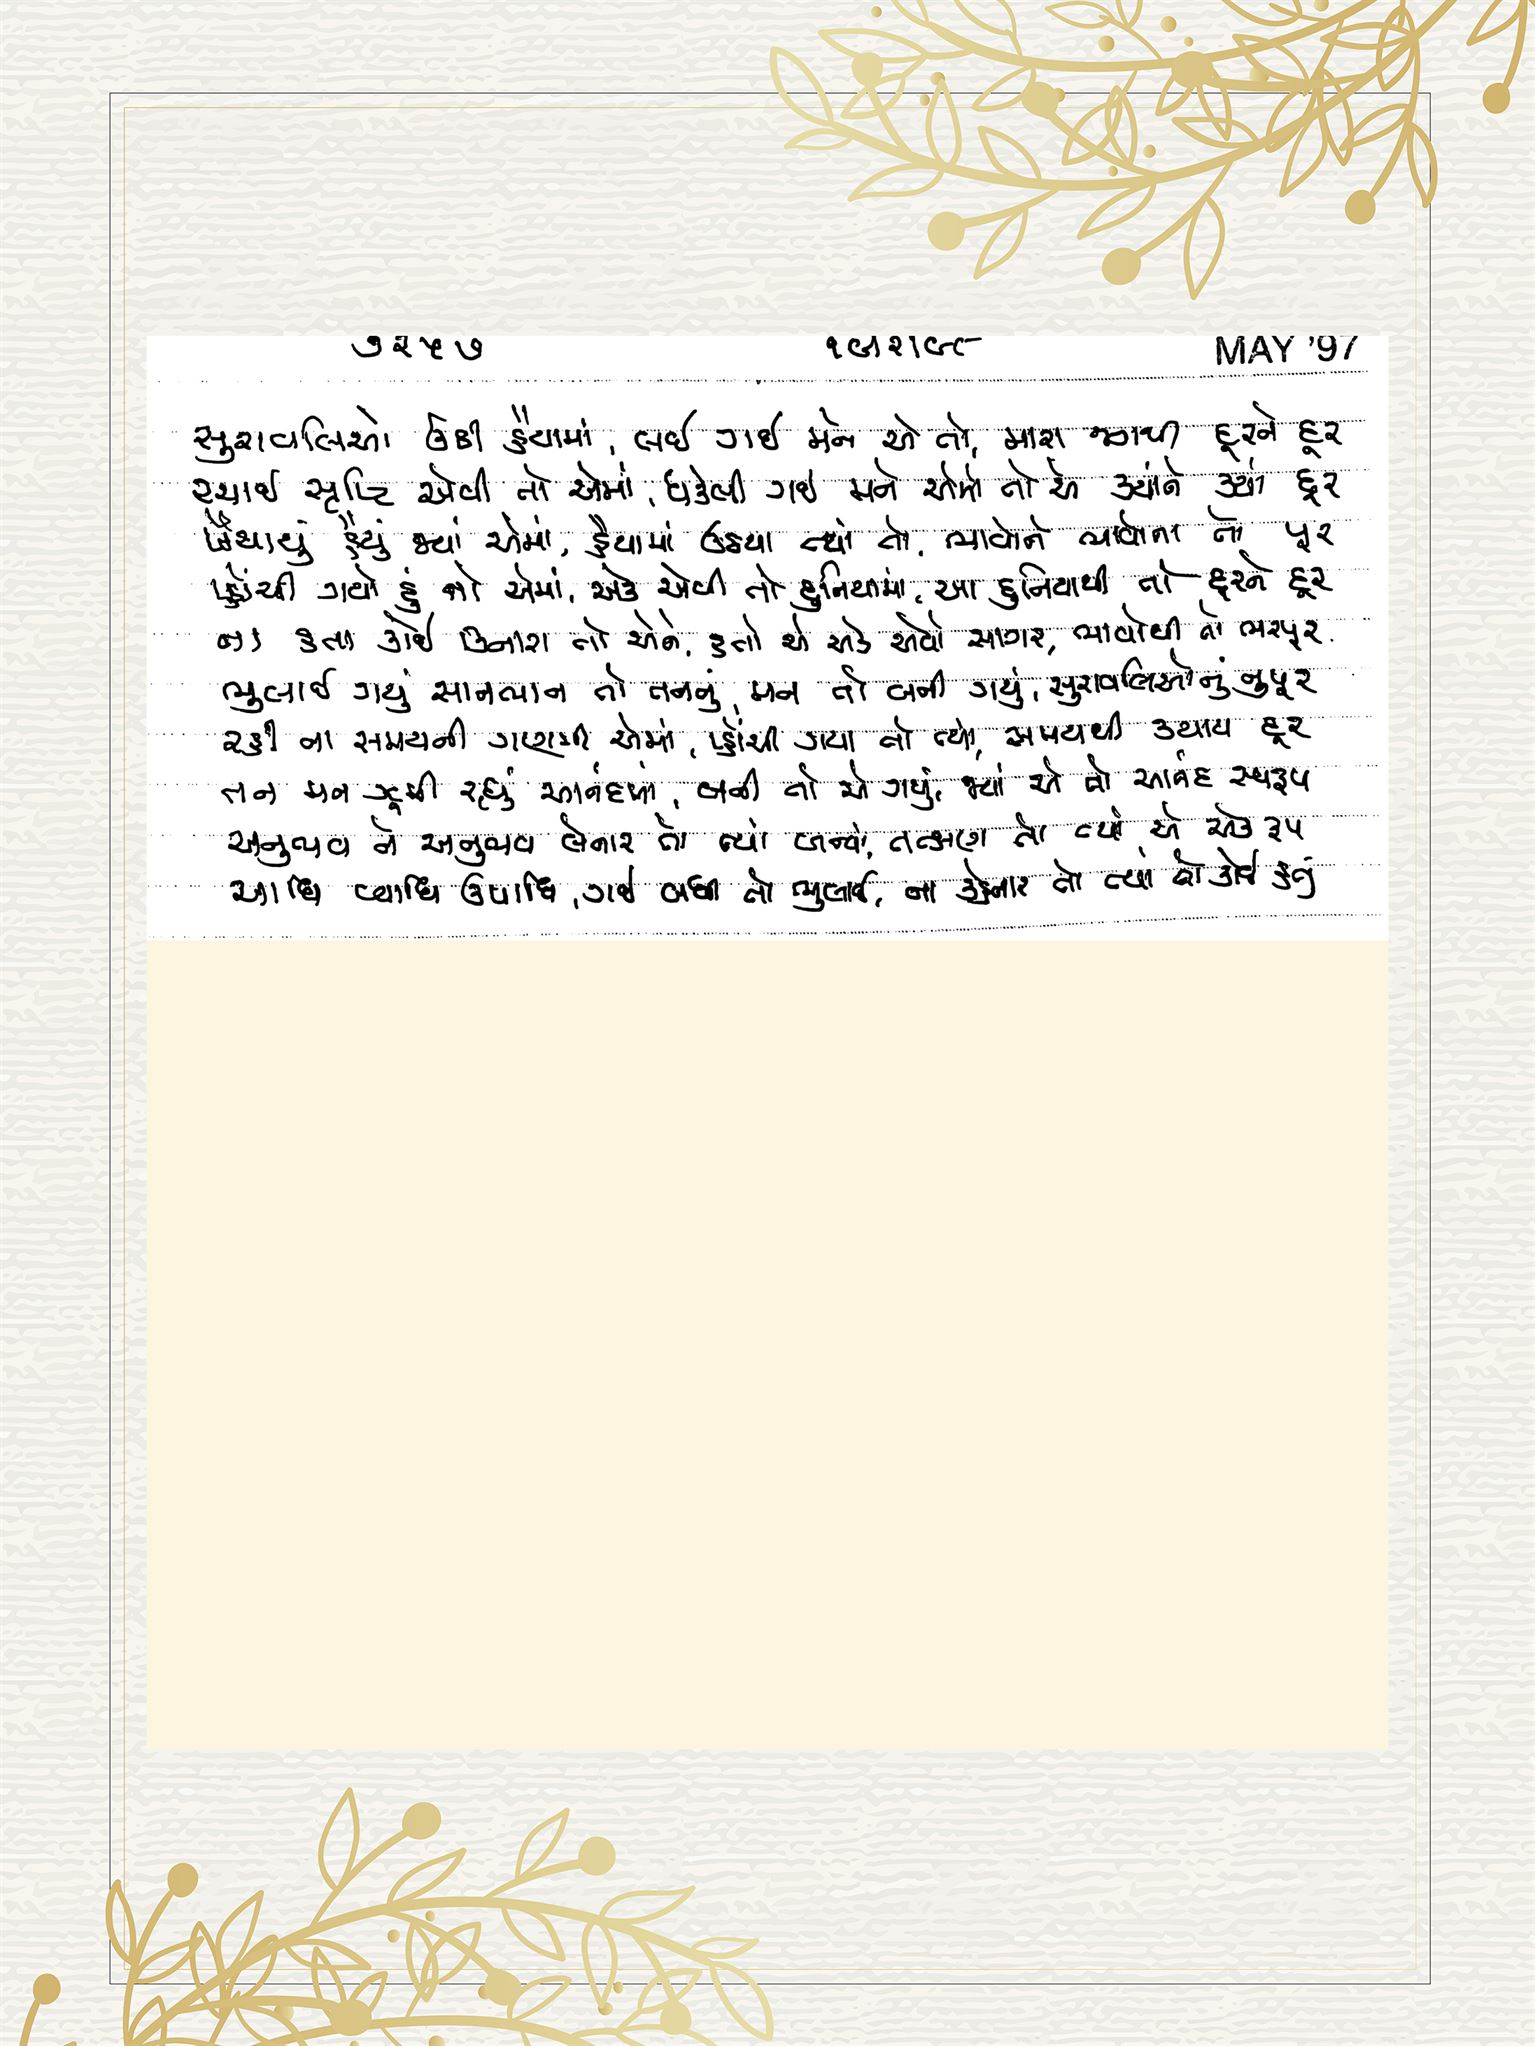 ૭૨૫૭ MAY '97
સુરાવલિઓ ઉઠી હૈયામાં, લઈ ગઈ મને એ તો, મારા જગથી દૂરને દૂર
રચાઈ સૃષ્ટિ એવી તો એમાં, ધકેલી ગઈ મને એમાં તો એ ક્યાંને ક્યાં દૂર
ખેંચાયું હૈયું જ્યાં એમાં, હૈયામાં ઉઠયા ત્યાં તો, ભાવોને ભાવોના તો પૂર
પ્હોંચી ગયો હું તો એમાં, એક એવી તો દુનિયામાં, આ દુનિયાથી તો દૂરને દૂર
ના હતા કોઈ કિનારા તો એને, હતો એ એક એવો સાગર, ભાવોથી તો ભરપૂર
ભુલાઈ ગયું સાનભાન તો તનનું, મન તો બની ગયું, સુરાવલિઓનું નુપૂર
રહી ના સમયની ગણત્રી એમાં, પ્હોંચી ગયા તો ત્યાં, સમયથી ક્યાય દૂર
તન મન ઝૂમી રહ્યું આનંદમાં, બની તો એ ગયું, જ્યાં એ તો આનંદ સ્વરૂપ
અનુભવ ને અનુભવ લેનાર તો ત્યાં બન્યાં, તત્ક્ષણ તો ત્યાં એ એક રૂપ
આધિ વ્યાધિ ઉપાધિ, ગઈ બધી તો ભુલાઈ, ના કહેનાર તો ત્યાં તો કોઈ હતું